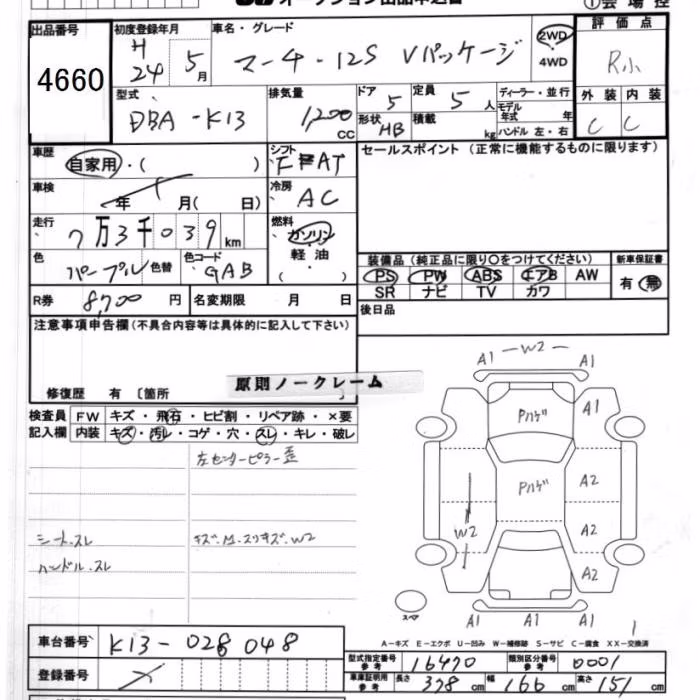 ①会場控
出品番号
4660
初度登録年月
H
24 5月
車名・グレード
マーチ・12S Vパッケージ
2WD
4WD
評価点
R小
型式
DBA-K13
排気量
1,200
CC
ドア
5
定員
5人
形状
HB
積載
kg
ディーラー・並行
モデル年式 年
ハンドル 左・右
外装
C
内装
C
車歴
自家用・( )
車検
年 月( 日)
シフト
FAT
冷房
AC
セールスポイント (正常に機能するものに限ります)
走行
7万3千039km
燃料
ガソリン
軽油
( )
色
パープル
色替
色コード
GAB
装備品 (純正品に限り○をつけてください)
PS PW ABS エアB AW
SR ナビ TV カワ
新車保証書
有 無
R券 8,700円
名変期限 月 日
後日品
注意事項申告欄(不具合内容等は具体的に記入して下さい)
修復歴 有 〔箇所
原則ノークレーム
検査員
記入欄
FW キズ・飛石・ヒビ割・リペア跡・×要
内装 キズ・汚レ・コゲ・穴・スレ・キレ・破レ
左センターピラー歪
シートスレ
キズ・凹・スリキズ・W2
ハンドルスレ
A1 W2 A1
Pハゲ
A1
Pハゲ
A2
W2
A2
A2
A1 A1 A1
スペア
1
A-キズ E-エクボ U-凹み W-補修跡 S-サビ C-腐食 XX-交換済
車台番号 K13-028048
登録番号
型式指定番号 参考 16470
類別区分番号 参考 0001
車庫証明用 参考 長さ 378cm 幅 166cm 高さ 151cm